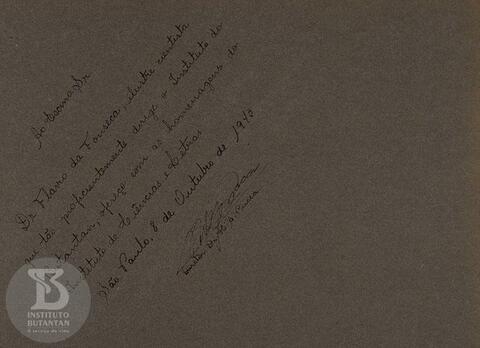 Ao Exmo. Sr.
Dr. Flavio da Fonseca, ilustre cientista
que tão proficientemente dirige o Instituto do
Butantan, ofereço com as homenagens do
Instituto de Ciências e Letras
São Paulo, 8 de Outubro de 1940
INSTITUTO
BUTANTAN
A serviço da vida